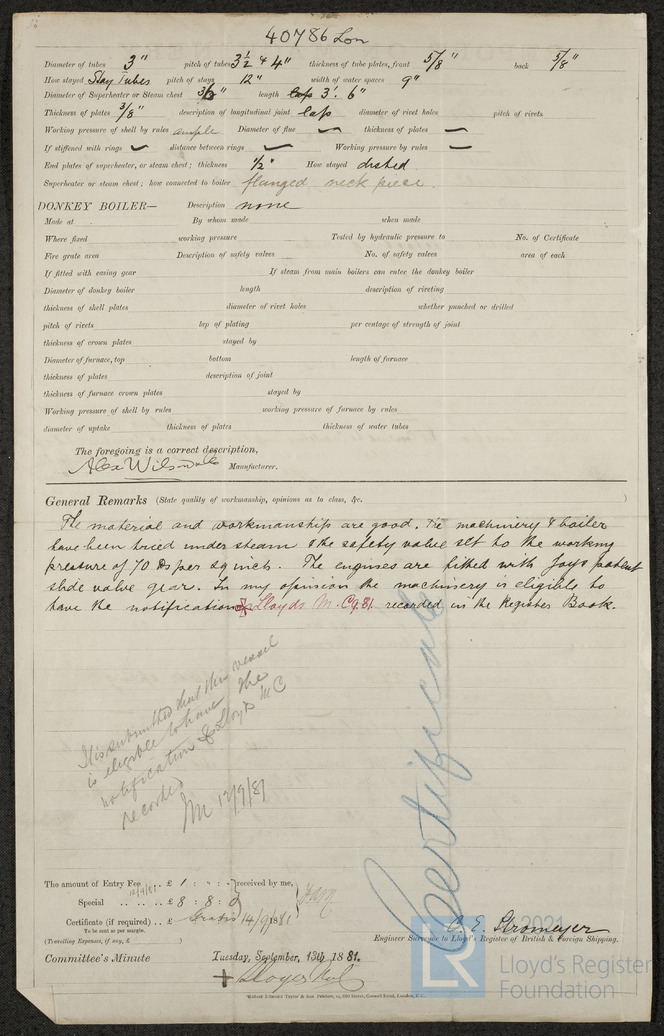 40786 Lon
Diameter of tubes 3" pitch of tubes 3½ & 4" thickness of tube plates, front 5/8" back 5/8"
How stayed Stay Tubes pitch of stays 12" width of water spaces 9"
Diameter of Superheater or Steam chest length 3'. 6"
Thickness of plates 3/8" description of longitudinal joint lap diameter of rivet holes pitch of rivets
Working pressure of shell by rules ample Diameter of flue — thickness of plates —
If stiffened with rings — distance between rings — Working pressure by rules —
End plates of superheater, or steam chest; thickness ½" How stayed dished
Superheater or steam chest; how connected to boiler flanged neck piece.
DONKEY BOILER— Description none
Made at By whom made when made
Where fixed working pressure Tested by hydraulic pressure to No. of Certificate
Fire grate area Description of safety valves No. of safety valves area of each
If fitted with easing gear If steam from main boilers can enter the donkey boiler
Diameter of donkey boiler length description of riveting
thickness of shell plates diameter of rivet holes whether punched or drilled
pitch of rivets lap of plating per centage of strength of joint
thickness of crown plates stayed by
Diameter of furnace, top bottom length of furnace
thickness of plates description of joint
thickness of furnace crown plates stayed by
Working pressure of shell by rules working pressure of furnace by rules
diameter of uptake thickness of plates thickness of water tubes
The foregoing is a correct description,
Alex Wilson Manufacturer.
General Remarks (State quality of workmanship, opinions as to class, &c. )
The material and workmanship are good. The machinery & boiler
have been tried under steam & the safety valve set to the working
pressure of 70 lbs per sq inch. The engines are fitted with Joys patent
slide valve gear. In my opinion the machinery is eligible to
have the notification ✠ Lloyds M. C 9.81 recorded in the Register Book.
It is submitted that this vessel
is eligible to have the
notification ✠ Lloyds MC
recorded
12/9/81
Certificate
The amount of Entry Fee .. £ 1 : - : - received by me,
12/9/81
Special .. .. £ 8 : 8 :
Certificate (if required) .. £ Gratis 14/9/1881
To be sent as per margin.
(Travelling Expenses, if any, £ )
C. E. Stromeyer
Engineer Surveyor to Lloyd's Register of British & Foreign Shipping.
Committee's Minute Tuesday, September, 13th, 1881.
+ Lloyds
2021
LR
Lloyd's Register
Foundation